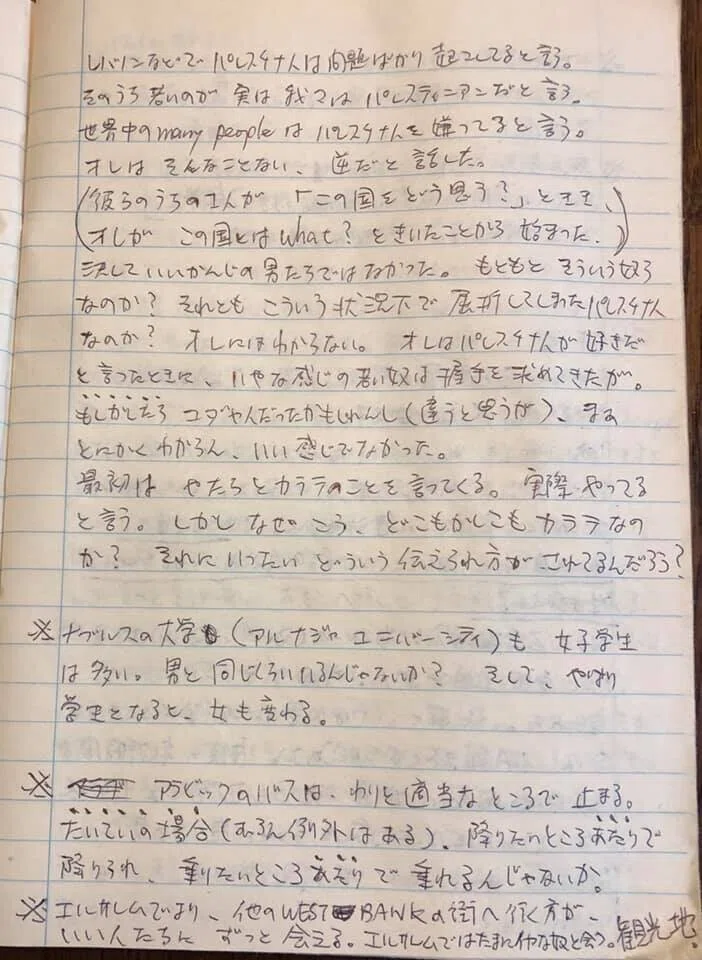 レバノンなどでパレスチナ人は問題ばかり起こしてると言う。
そのうち若いのが実は我々はパレスティニアンだと言う。
世界中のmany peopleはパレスチナ人を嫌ってると言う。
オレはそんなことない、逆だと話した。
(彼らのうちの1人が「この国をどう思う?」ときき、
オレがこの国とはwhat?ときいたことから始まった.)
決していいかんじの男たちではなかった。もともとそういう奴ら
なのか?それともこういう状況下で屈折してしまったパレスチナ人
なのか?オレにはわからない。オレはパレスチナ人が好きだ
と言ったときに、いやな感じの若い奴は握手を求めてきたが。
もしかしたらユダヤ人だったかもしれんし(違うと思うが)、まあ
とにかくわからん、いい感じでなかった。
最初はやたらとカラテのことを言ってくる。実際やってる
と言う。しかしなぜこう、どこもかしこもカラテなの
か?それにいったいどういう伝えられ方がされてるんだろう?
※ナブルスの大学(アルナジャユニバーシティ)も女子学生
は多い。男と同じくらいいるんじゃないか?そして、やはり
学生となると、女も変わる。
※アラビックのバスは、わりと適当なところで止まる。
たいていの場合(むろん例外はある)、降りたいところあたりで
降りられ、乗りたいところあたりで乗れるんじゃないか。
※エルサレムでより、他のWEST BANKの街へ行く方が、
いい人たちにずっと会える。エルサレムではたまにイヤな奴と会う。観光地.